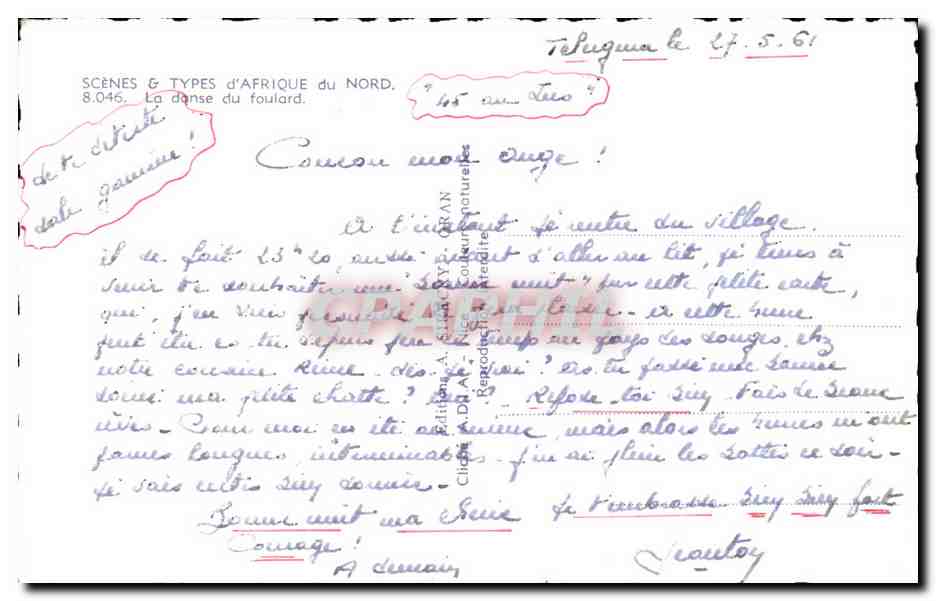 Telergma le 27.5.61
SCÈNES & TYPES d'AFRIQUE du NORD.
8.046. La danse du foulard.
"45 au Jus"
sale gamine!
Coucou mon ange!
A l'instant je rentre du village.
il se fait 23h20, aussi avant d'aller au lit, je tiens à
venir te souhaiter une "bonne nuit" par cette petite carte,
qui, j'en suis persuadé, te fera plaisir - à cette heure
peut être es tu depuis peu de temps au pays des songes, chez
notre cousine Reine - dis-je vrai? As tu passé une bonne
soirée ma petite chatte? oui? Repose-toi bien. Fais de beaux
rêves - Pour moi en été de même, mais alors les heures m'ont
parues longues, interminables - j'en ai plein les bottes ce soir -
Je vais enfin bien dormir -
Bonne nuit ma chérie Je t'embrasse bien bien fort
Courage!
A demain
Jeantoy
Editions A. ORAN
Cliché A.D.I.A. - Nice Couleurs naturelles
Reproduction interdite
CPARAMA